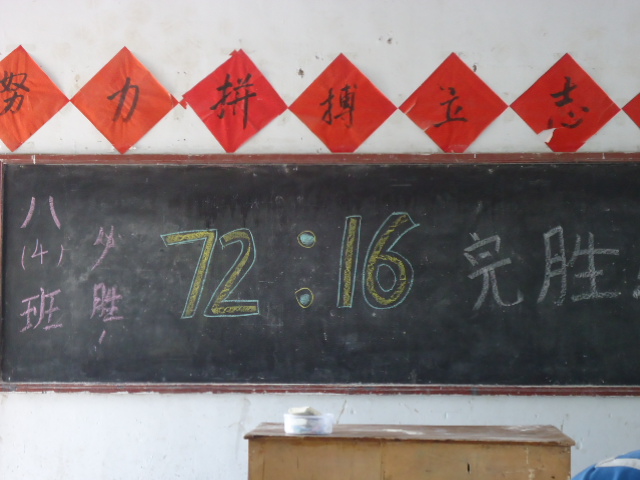 努力拼搏立志
八(4)班
必胜!
72:16
完胜